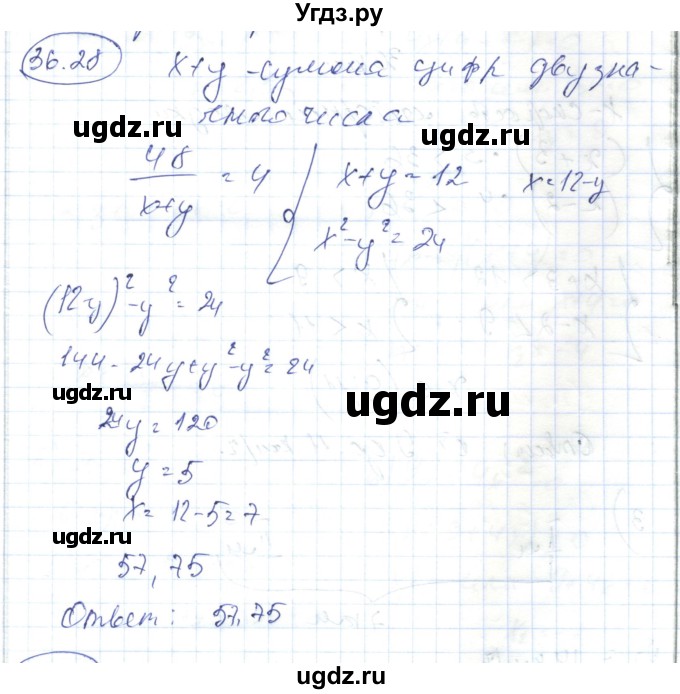 Угдз.ру
36.28 x+y - сумма цифр двузна-
чного числа
ugdz.ru ugdz.ru
48/(x+y) = 4 { x+y=12 x=12-y
x²-y²=24
(12-y)²-y²=24
144-24y+y²-y²=24
ugdz.ru ugdz.ru
24y=120
y=5
x=12-5=7
ugdz.ru ugdz.ru
57, 75
Ответ: 57,75
ugdz.ru ugdz.ru
Угдз.ру